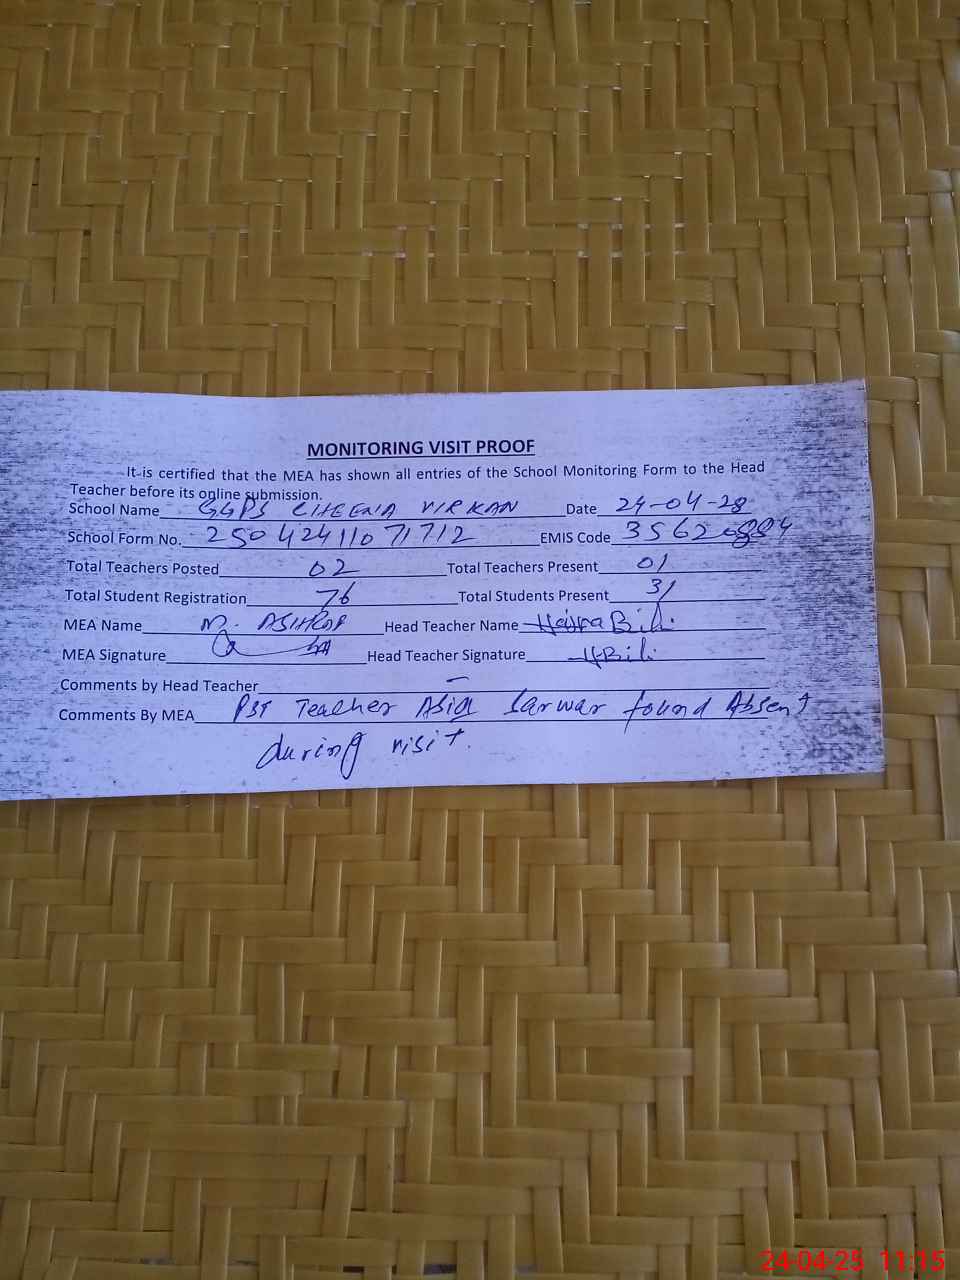 MONITORING VISIT PROOF
It is certified that the MEA has shown all entries of the School Monitoring Form to the Head
Teacher before its online submission.
School Name GGPS CHEENA VIRKAN Date 24-04-28
School Form No. 250424110 71712 EMIS Code 35620
Total Teachers Posted 02 Total Teachers Present 01
Total Student Registration 76 Total Students Present 31
MEA Name M. ASHRAF Head Teacher Name Bibi
MEA Signature Head Teacher Signature HBibi
Comments by Head Teacher –
Comments By MEA PST Teacher Asia Sarwar found Absent
during visit.
24-04-25 11:15